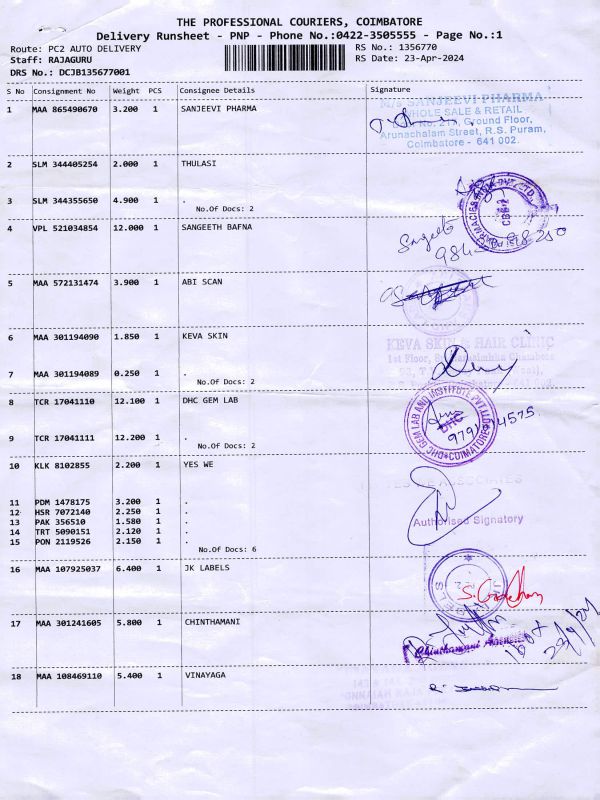 THE PROFESSIONAL COURIERS, COIMBATORE
Delivery Runsheet - PNP - Phone No.:0422-3505555 - Page No.:1
Route: PC2 AUTO DELIVERY
RS No.: 1356770
Staff: RAJAGURU
RS Date: 23-Apr-2024
DRS No.: DCJB135677001
S No Consignment No Weight PCS Consignee Details Signature
1 MAA 865490670 3.200 1 SANJEEVI PHARMA
M/s SANJEEVI PHARMA
WHOLE SALE & RETAIL
Ground Floor,
Arunachalam Street, R.S. Puram,
Coimbatore - 641 002.
2 SLM 344405254 2.000 1 THULASI
3 SLM 344355650 4.900 1 .
No.Of Docs: 2
4 VPL 521034854 12.000 1 SANGEETH BAFNA
5 MAA 572131474 3.900 1 ABI SCAN
6 MAA 301194090 1.850 1 KEVA SKIN
KEVA SKIN & HAIR CLINIC
1st Floor,
7 MAA 301194089 0.250 1 .
No.Of Docs: 2
8 TCR 17041110 12.100 1 DHC GEM LAB
DHC GEM LAB AND INSTITUTE PVT LTD
COIMATORE
DHC
9 TCR 17041111 12.200 1 .
No.Of Docs: 2
10 KLK 8102855 2.200 1 YES WE
11 PDM 1478175 3.200 1 .
12 HSR 7072140 2.250 1 .
13 PAK 356510 1.580 1 .
14 TRT 5090151 2.120 1 .
15 PON 2119526 2.150 1 .
No.Of Docs: 6
Authorised Signatory
16 MAA 107925037 6.400 1 JK LABELS
17 MAA 301241605 5.800 1 CHINTHAMANI
Chinthamani Agencies
18 MAA 108469110 5.400 1 VINAYAGA